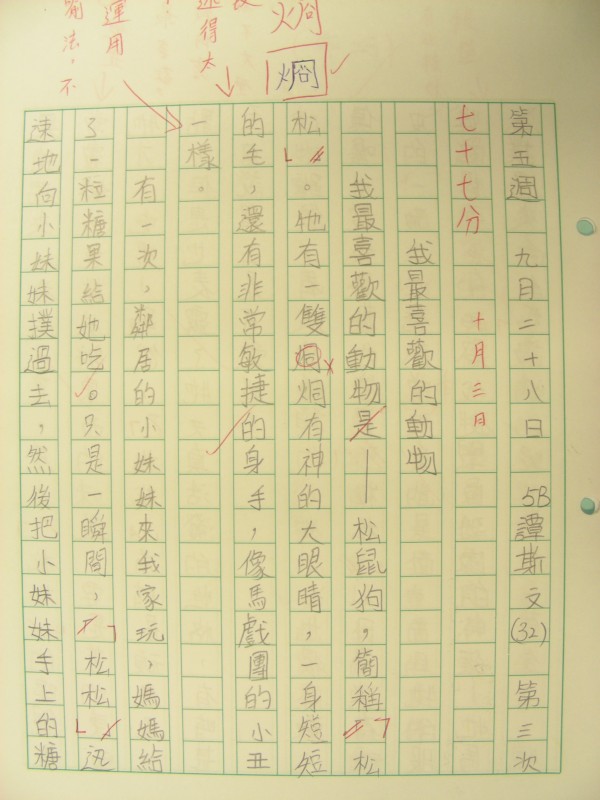 烱
烱
得太
運用
法，不
第五週 九月二十八日 5B譚斯文(32) 第三次
七十七分 十月三日
我最喜歡的動物
我最喜歡的動物是——松鼠狗，簡稱「松
松」。牠有一雙烱烱有神的大眼睛，一身短短
的毛，還有非常敏捷的身手，像馬戲團的小丑
一樣。
有一次，鄰居的小妹妹來我家玩，媽媽給
了一粒糖果給她吃。只是一瞬間，「松松」迅
速地向小妹妹撲過去，然後把小妹妹手上的糖